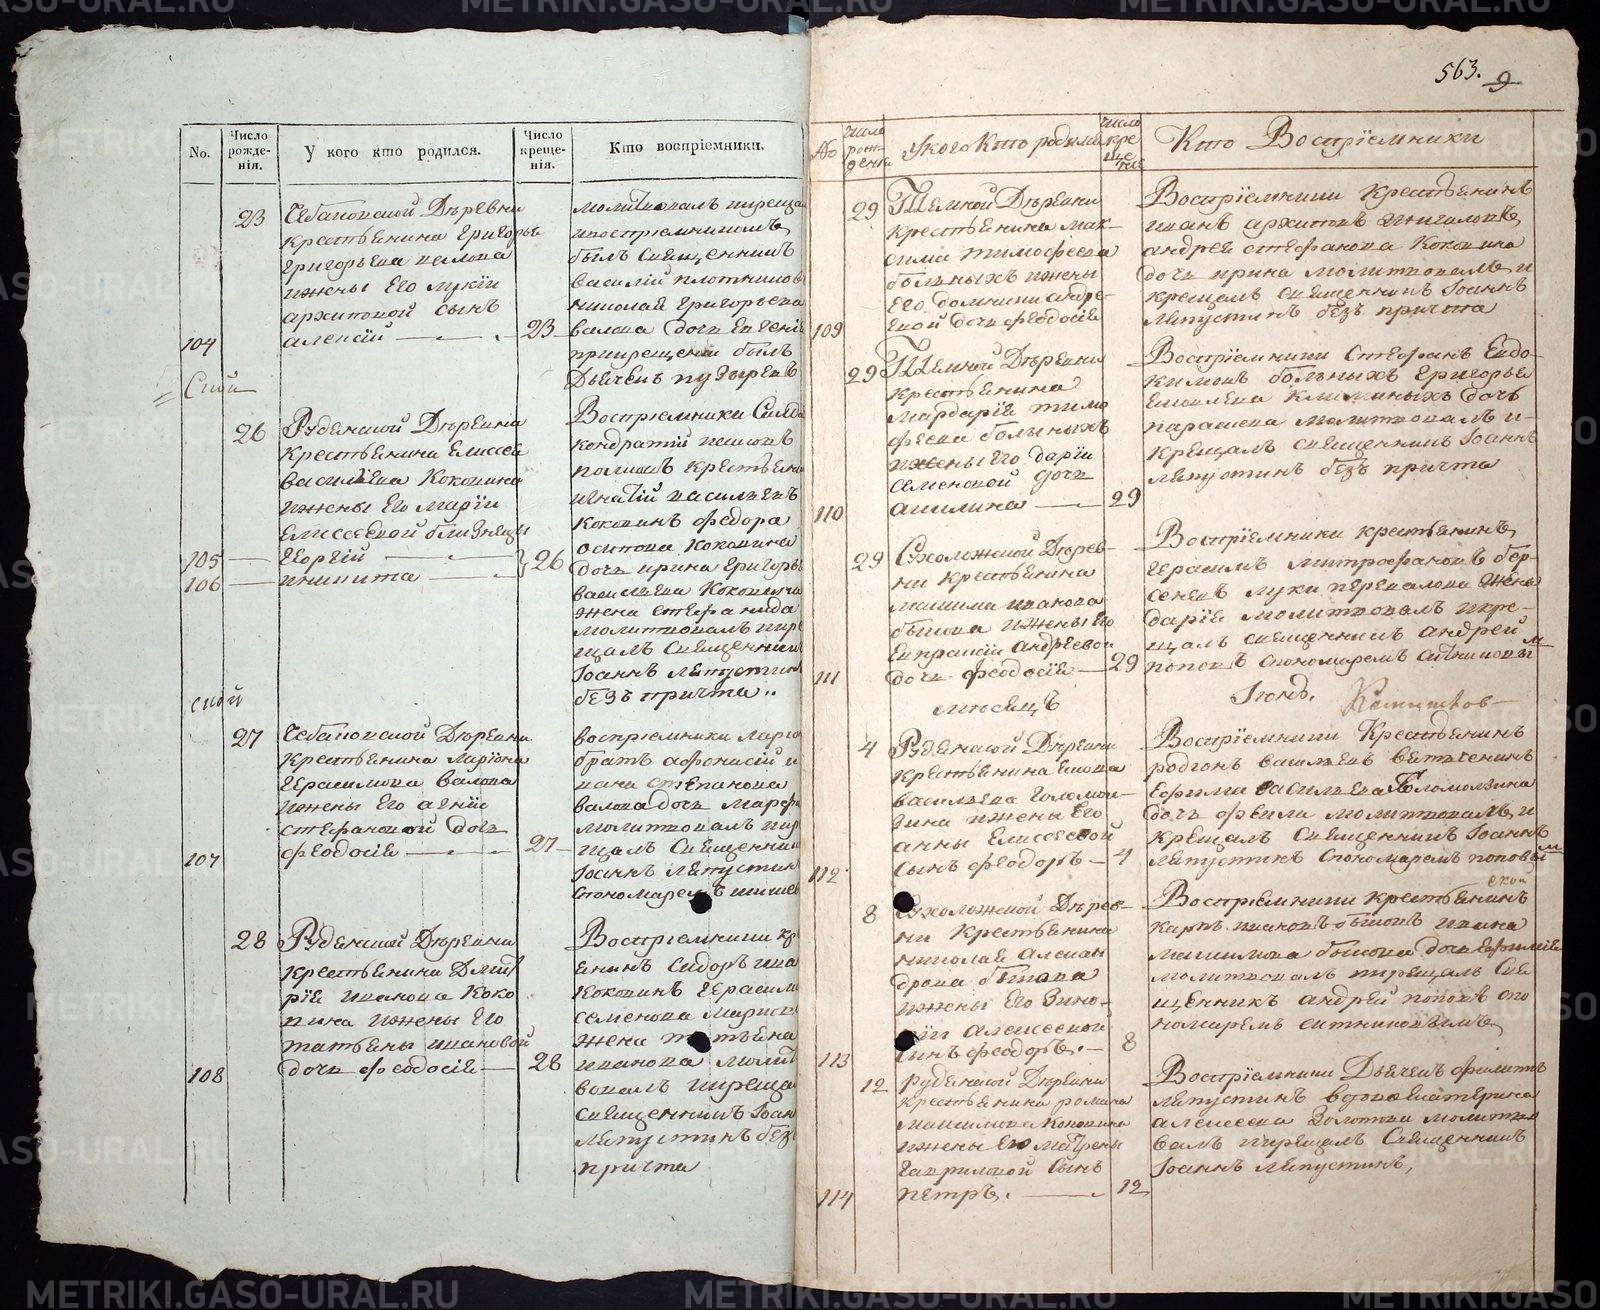 No.
Число рожденія.
У кого кто родился.
Число крещенія.
Кто воспріемники.
23
Чебаковской Деревни
крестьянина Григорья
Григорьева валова
ижены Его лукіи
архиповой сынъ
104 алексій 23
былъ Священникъ
василій плотниковъ
николай Григорьева
валова дочь Евгенія
прикрещеніи былъ
Дьячекъ пузыревъ
26
Руденской Деревни
крестьянина Елисея
васильева Коковина
ижены Его маріи
Елисеевой близнецы
105 Георгій 26
106 никита
Воспріемники
кондратій
крестьянинъ
игнатій васильевъ
коковинъ федора
осипова коковина
дочь ирина Григорья
васильева Коковина
жена стефанида
молитвовалъ икре
щалъ Священникъ
Іоаннъ ляпустинъ
безъ причта
27
Чебаковской Деревни
Крестьянина ларіона
Герасимова валова
ижены Его агніи
стефановой дочь
107 феодосія 27
воспріемники ларіо
братъ афонасій и
вана степанова
валова дочь марфа
молитвовалъ икре
щалъ Священникъ
Іоаннъ ляпустинъ
спономаремъ
28
Руденской Деревни
крестьянина Дмит
рія иванова Коко
вина ижены Его
татьяны ивановой
108 дочь феодосія 28
Воспріемники кр
янинъ Сидоръ ива
Коковинъ Герасима
семенова
жена татьяна
иванова молит
вовалъ икреща
священникъ Іоан
ляпустинъ без
причта
563. 9
No
Число рожденія
У кого Кто родился
число крещенія
Кто Воспріемники
29
Темной Деревни
крестьянина мак-
сима тимофеева
больныхъ ижены
Его домники андре-
109 евой дочь феодосія
Воспріемники Крестьянинъ
иванъ архиповъ
андрея стефанова Коковина
дочь ирина молитвовалъ и
крещалъ Священникъ Іоаннъ
ляпустинъ безъ причта
29
Темной Деревни
крестьянина
мардарія тимо
феева больныхъ
ижены Его даріи
семеновой дочь
110 акилина 29
Воспріемники Стефанъ Евдо-
кимовъ больныхъ Григорья
дочь
парасева молитвовалъ и
крещалъ священникъ Іоаннъ
ляпустинъ безъ причта
29
Сухоложской Дерев-
ни крестьянина
иванова
быкова ижены Его
Евпраксіи андреевой
111 дочь феодосія 29
Воспріемники крестьянинъ
Герасимъ митрофановъ бер-
сеневъ луки перевалова жена
дарія молитвовалъ икре-
щалъ священникъ андрей
поповъ спономаремъ ситниковымъ
мѣсяцъ
Іюнь.
4
Руденской Деревни
крестьянина
васильева Голомол-
зина ижены Его
анны Елисеевой
112 сынъ феодоръ 4
Воспріемники Крестьянинъ
родіонъ васильевъ
Ефима васильева Голомолзина
дочь фекла молитвовалъ и
крещалъ Священникъ Іоаннъ
ляпустинъ спономаремъ поповымъ
8
Сухоложской Дерев-
ни Крестьянина
николая алексан
дрова быкова
ижены Его Зино-
віи алексеевой
113 сынъ феодоръ. 8
Воспріемники крестьянинъ
карпъ ивановъ быковъ ивана
быкова дочь Ефимія
молитвовалъ икрещалъ Свя
щенникъ андрей поповъ спо
номаремъ ситниковымъ
12
Руденской Деревни
крестьянина романа
максимова коковина
ижены Его матрены
Гавриловой Сынъ
114 петръ. 12
Воспріемники Дьячекъ филипъ
ляпустинъ вдова екатерина
алексеева Золотова молитво
валъ икрещалъ Священникъ
Іоаннъ ляпустинъ,
METRIKI.GASO-URAL.RU